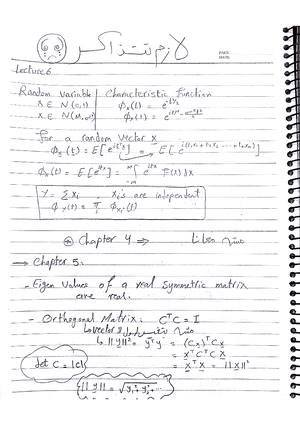 لازم تتذاكر
PAGE
DATE
Lecture 6
Random Variable | Characteristic Function
X ∈ N(0,1) Φₓ(t) = e^{-t²/2}
X ∈ N(M,σ²) Φₓ(t) = e^{itM - σ²t²/2}
for a random vector X
Φₓ(t) = E[e^{it'x}] = E[e^{i(t₁x₁+t₂x₂+...+tₙxₙ)}]
Φₓ(t) = E[e^{itx}] = ∫_{-∞}^{∞} e^{itx} F(x) dx
Y = Σxᵢ , xᵢ's are independent
Φ_Y(t) = π Φ_{xᵢ}(t)
Chapter 4 ⇒
→ Chapter 5:
- Eigen Values of a real symmetric matrix
are real.
- Orthogonal Matrix: CᵀC = I
↳ ||y||² = yᵀy = (Cx)ᵀCx
= xᵀCᵀCx
= xᵀx = ||x||²
det C = |C|
||y|| = √(y₁²+y₂²+...